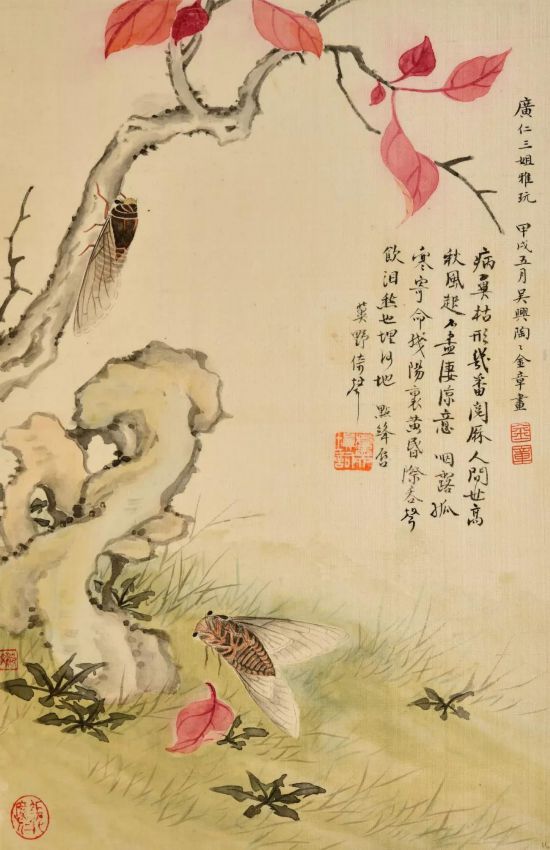 廣仁三姐雅玩 甲戌五月吳興陶々金章畫
病翼枯形幾番閱厤人間世高
秋風起不盡淒涼意 咽露孤
寒寄命殘陽裏黃昏際吞聲
飲泪愁也埋何地 點絳唇
野倚聲
金章